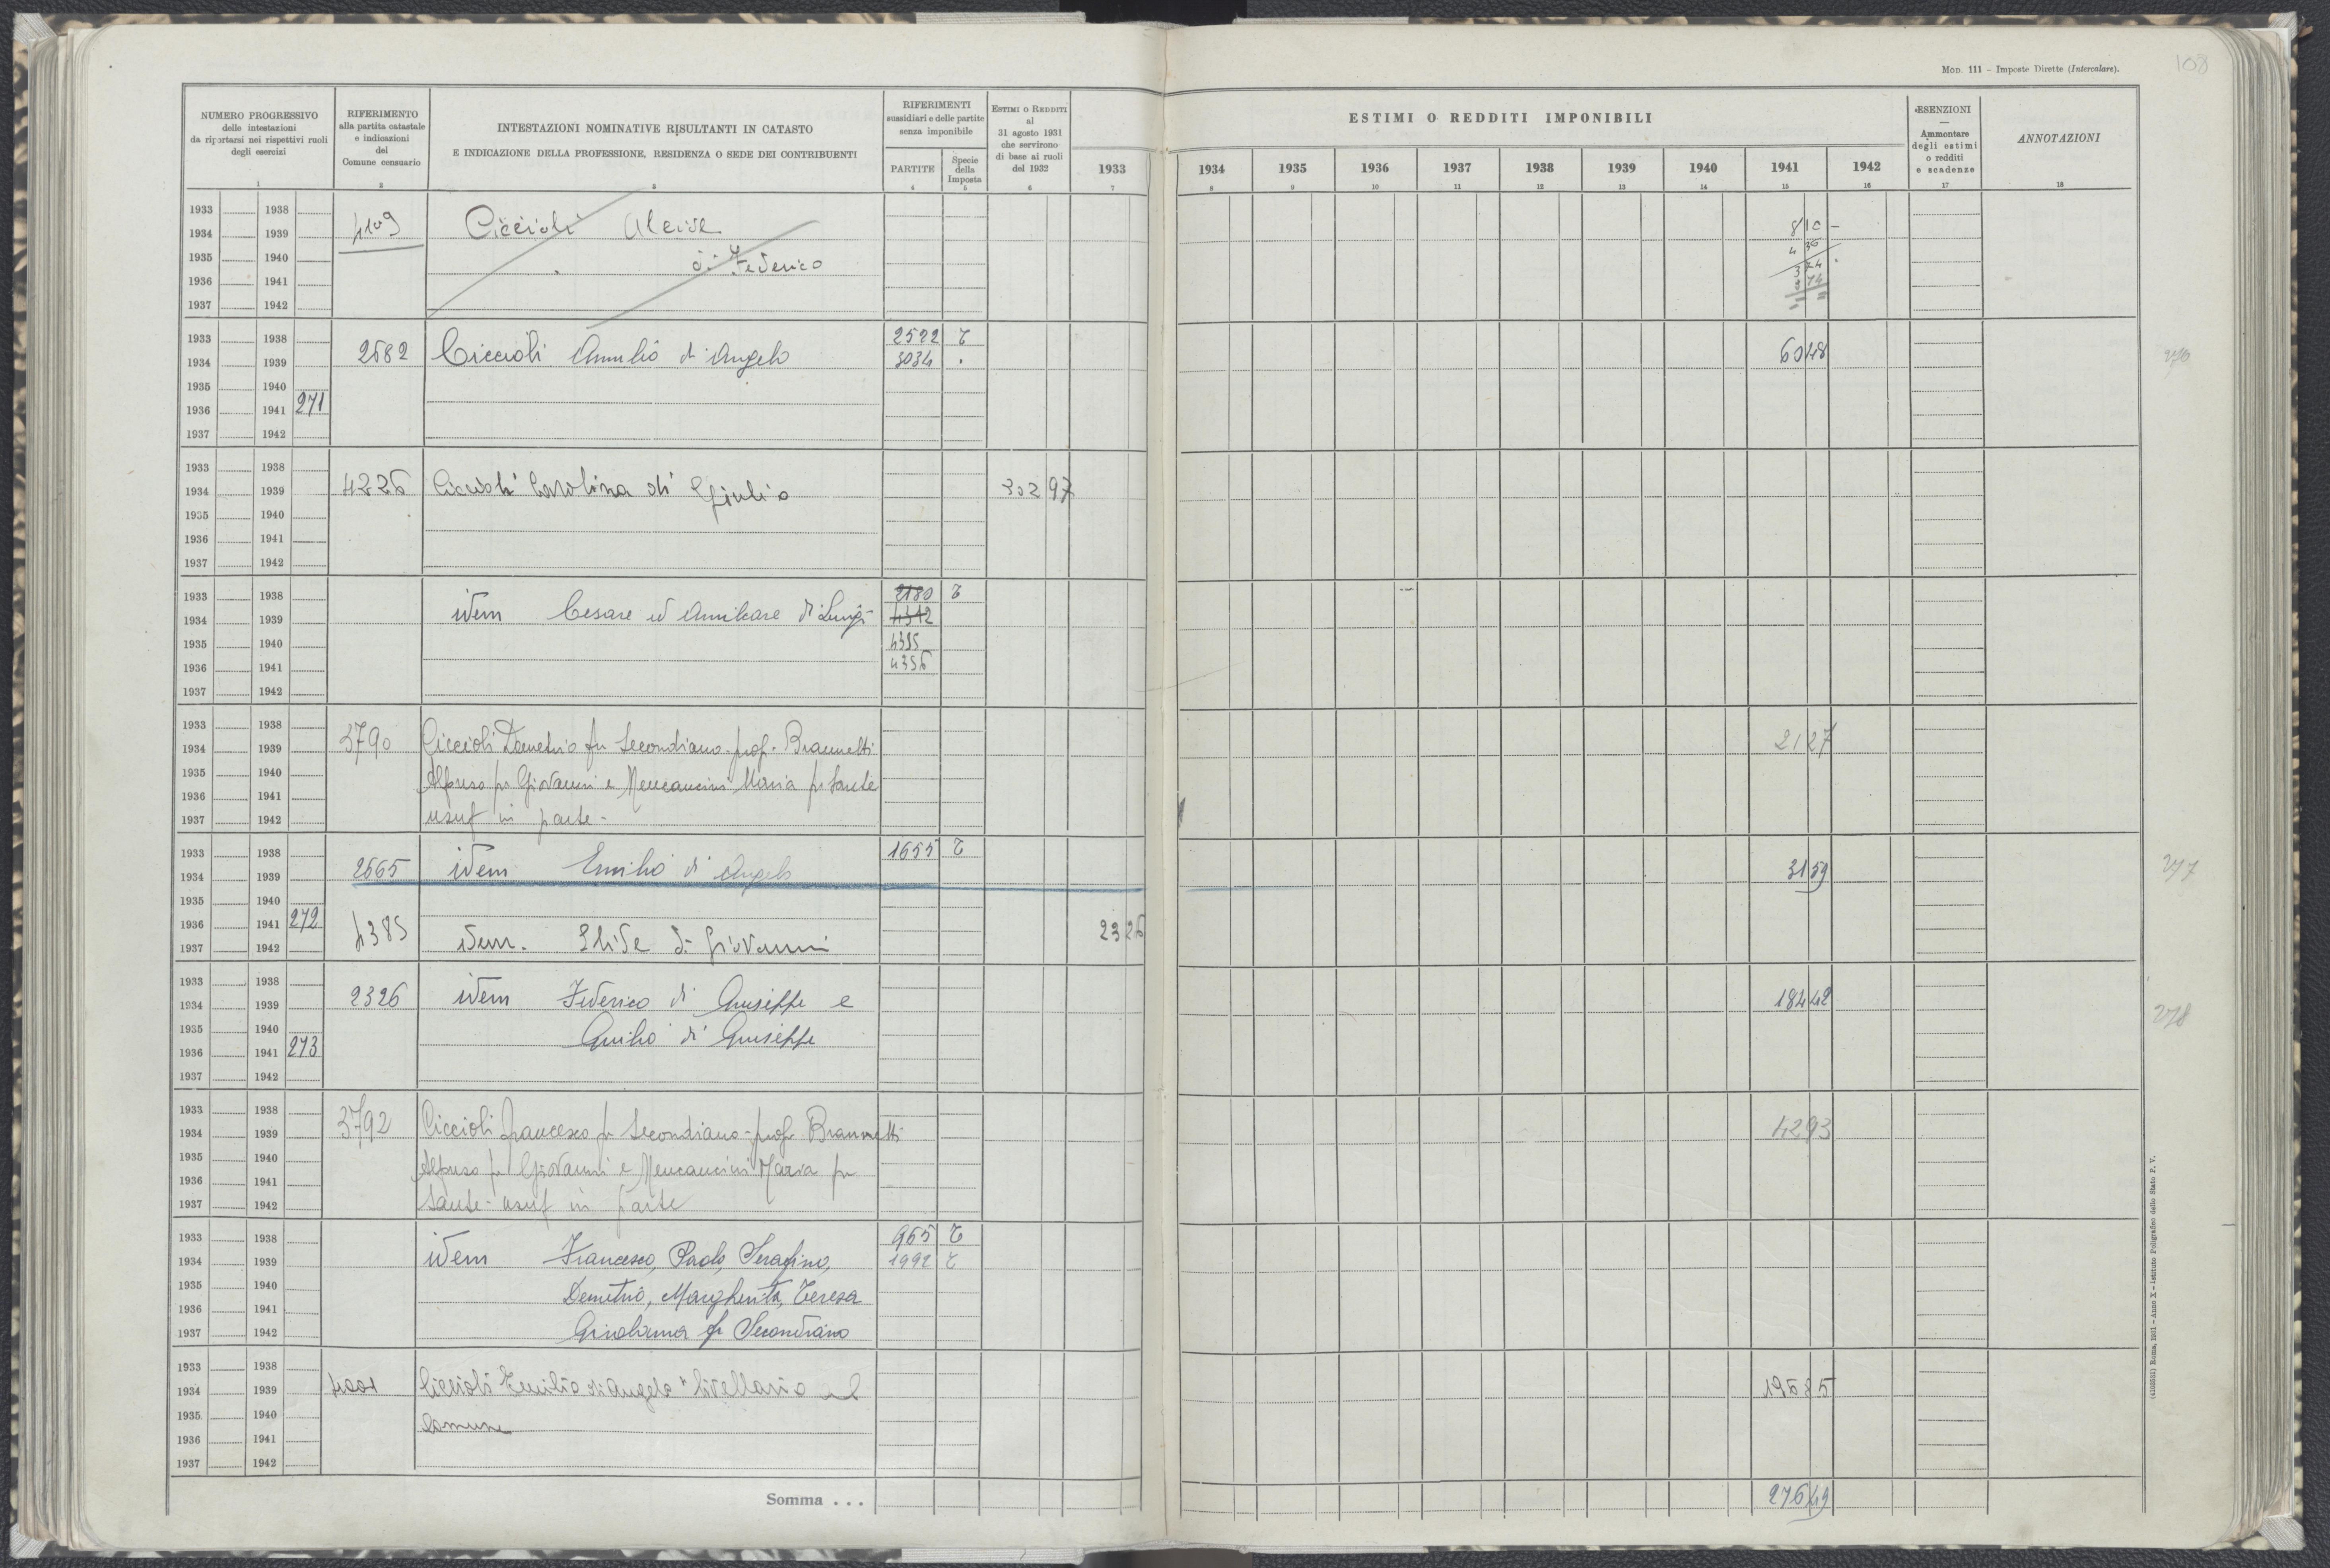 108
MOD. 111 – Imposte Dirette (Intercalare).
NUMERO PROGRESSIVO
delle intestazioni
da riportarsi nei rispettivi ruoli
degli esercizi
1
RIFERIMENTO
alla partita catastale
e indicazioni
del
Comune censuario
2
INTESTAZIONI NOMINATIVE RISULTANTI IN CATASTO
E INDICAZIONE DELLA PROFESSIONE, RESIDENZA O SEDE DEI CONTRIBUENTI
3
RIFERIMENTI
sussidiari e delle partite
senza imponibile
PARTITE
4
Specie
della
Imposta
5
ESTIMI O REDDITI
al
31 agosto 1931
che servirono
di base ai ruoli
del 1932
6
1933
7
ESTIMI O REDDITI IMPONIBILI
1934 1935 1936 1937 1938 1939 1940 1941 1942
8 9 10 11 12 13 14 15 16
ESENZIONI
—
Ammontare
degli estimi
o redditi
e scadenze
17
ANNOTAZIONI
18
1933 1938
1934 1939 4109 Ciccioli Alcide 810 -
1935 1940 di Federico 436
1936 1941 374
1937 1942 374
1933 1938 2522 T
1934 1939 2582 Ciccioli Annilio di Angelo 3034 6048 276
1935 1940
1936 1941 271
1937 1942
1933 1938
1934 1939 4226 Ciccioli Carolina di Giulio 302 97
1935 1940
1936 1941
1937 1942
1933 1938 2180 T
1934 1939 idem Cesare ed Amilcare di Luigi 4312
1935 1940 4395
1936 1941 4396
1937 1942
1933 1938
1934 1939 3790 Ciccioli Demetrio fu Secondiano - prop. Braunetti 2127
1935 1940
1936 1941 Alfonso fu Giovanni e Mencancini Maria fu Sante
1937 1942 usuf in parte -
1933 1938 1655 T
1934 1939 2665 idem Emilio di Angelo 3159 277
1935 1940
1936 1941 272
1937 1942 4385 idem. Elide di Giovanni 23 26
1933 1938
1934 1939 2326 idem Federico di Giuseppe e 18442 278
1935 1940 Giulio di Giuseppe
1936 1941 273
1937 1942
1933 1938
1934 1939 3792 Ciccioli Francesco fu Secondiano - prop. Braunetti 4293
1935 1940 Alfonso fu Giovanni e Mencancini Maria fu
1936 1941
1937 1942 Sante - usuf in parte
1933 1938 965 T
1934 1939 idem Francesco, Paolo, Serafino, 1992 T
1935 1940 Demetrio, Margherita, Teresa
1936 1941
1937 1942 Girolama fu Secondiano
1933 1938
1934 1939 4001 Ciccioli Emilio di Angelo livellario al 19535
1935 1940 Comune
1936 1941
1937 1942
Somma . . . 27649
(4103531) Roma, 1931 - Anno X - Istituto Poligrafico dello Stato P. V.